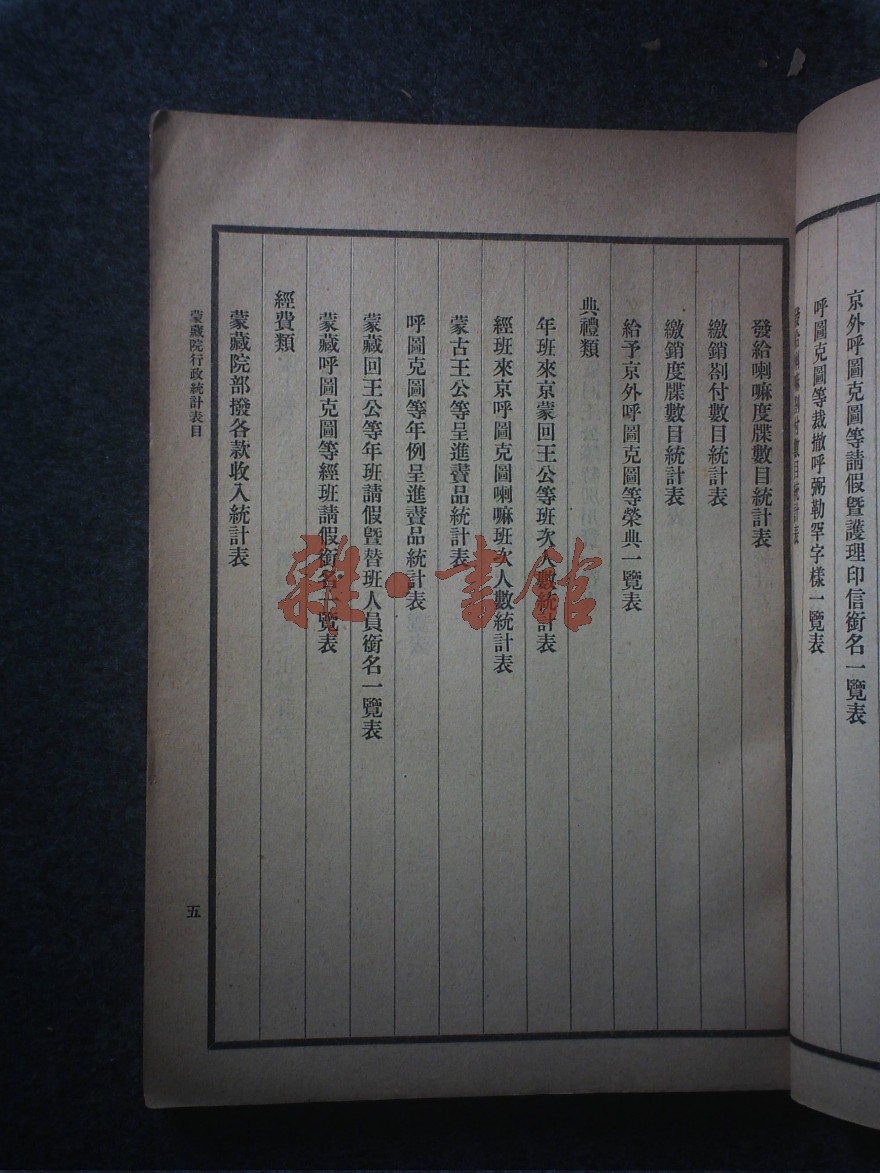 京外呼圖克圖等請假曁護理印信銜名一覽表
呼圖克圖等裁撤呼弼勒罕字樣一覽表
發給喇嘛劄付數目統計表
發給喇嘛度牒數目統計表
繳銷劄付數目統計表
繳銷度牒數目統計表
給予京外呼圖克圖等榮典一覽表
典禮類
年班來京蒙回王公等班次人數統計表
經班來京呼圖克圖喇嘛班次人數統計表
蒙古王公等呈進貢品統計表
呼圖克圖等年例呈進貢品統計表
蒙藏回王公等年班請假曁替班人員銜名一覽表
蒙藏呼圖克圖等經班請假銜名一覽表
經費類
蒙藏院部撥各款收入統計表
蒙藏院行政統計表目
五
雜·書館